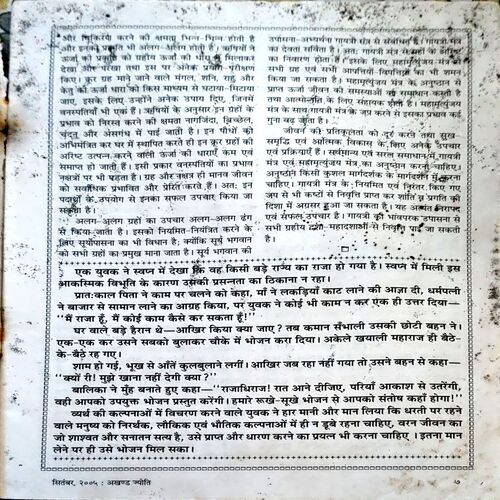 और विकिरण करने की क्षमता भिन्न-भिन्न होती है
और इनकी प्रकृति भी अलग-अलग होती है। ऋषियों ने
ऊर्जा की प्रकृति को ग्रहीय ऊर्जा की धारा से मिलाकर
देखा और परखा तथा इस पर अनेक प्रयोग-परीक्षण
किए। क्रूर ग्रह माने जाने वाले मंगल, शनि, राहु और
केतु की ऊर्जा धारा को किस माध्यम से घटाया-मिटाया
जाए, इसके लिए उन्होंने अनेक उपाय दिए, जिनमें
वनस्पतियाँ भी एक हैं। ऋषियों के अनुसार इन ग्रहों के
प्रभाव को निरस्त करने की क्षमता नागजिंदा,
और अंसगंध में पाई जाती है। इन पौधों को
अभिमंत्रित कर घर में स्थापित करते ही इन क्रूर ग्रहों की
अरिष्ट उत्पन्न करने वाली ऊर्जा की धाराएँ कम एवं
समाप्त हो जाती हैं। इसी प्रकार वनस्पतियों का प्रभाव
नक्षत्रों पर भी पड़ता है। ग्रह और नक्षत्र ही मानव जीवन
को सर्वाधिक प्रभावित और प्रेरित करते हैं। अतः इन
पदार्थों के उपयोग से इनका सफल उपचार किया जा
सकता है।
अलग-अलग ग्रहों का उपचार अलग-अलग ढंग
से किया जाता है। इसको नियमित-नियंत्रित करने के
लिए सूर्योपासना का भी विधान है; क्योंकि सूर्य भगवान
को सभी ग्रहों का प्रमुख माना जाता है। सूर्य भगवान की
उपासना-अभ्यर्थना गायत्री मंत्र से संबंधित है। गायत्री मंत्र
का देवता सविता है। अतः गायत्री मंत्र से ग्रहों के अरिष्ट
का निवारण होता है। इसके लिए महामृत्युंजय मंत्र से
सभी ग्रह एवं सभी आपत्तियों-विपत्तियों का भी शमन
किया जा सकता है। महामृत्युंजय मंत्र के अनुष्ठान से
प्राप्त ऊर्जा जीवन की समस्याओं का समाधान करती है
तथा आत्मोन्नति के लिए सहायक होती है। महामृत्युंजय
मंत्र के साथ, गायत्री मंत्र के जप करने से इसका प्रभाव कई
गुना बढ़ जाता है।
जीवन की प्रतिकूलता को दूर करने तथा सुख-
समृद्धि एवं आत्मिक विकास के लिए अनेक उपचार
एवं प्रक्रियाएँ हैं। सर्वमान्य एवं सरल समाधान में गायत्री
मंत्र एवं महामृत्युंजय मंत्र का अनुष्ठान करना चाहिए।
अनुष्ठान किसी कुशल मार्गदर्शक के मार्गदर्शन में करना
चाहिए। गायत्री मंत्र के नियमित एवं निरंतर किए गए
जप से भी कष्टों से निवृत्ति प्राप्त कर शांति व प्रगति की
दिशा में अग्रसर हुआ जा सकता है। यह अत्यंत निरापद
एवं सफल उपचार है। गायत्री की भावपरक उपासना से
सभी ग्रहीय दशा-महादशाओं से निवृत्ति पाई जा सकती
है।
एक युवक ने स्वप्न में देखा कि वह किसी बड़े राज्य का राजा हो गया है। स्वप्न में मिली इस
आकस्मिक विभूति के कारण उसकी प्रसन्नता का ठिकाना न रहा।
प्रातःकाल पिता ने काम पर चलने को कहा, माँ ने लकड़ियाँ काट लाने की आज्ञा दी, धर्मपत्नी
ने बाजार से सामान लाने का आग्रह किया, पर युवक ने कोई भी काम न कर एक ही उत्तर दिया—
“मैं राजा हूँ, मैं कोई काम कैसे कर सकता हूँ!”
घर वाले बड़े हैरान थे—आखिर किया क्या जाए? तब कमान सँभाली उसकी छोटी बहन ने।
एक-एक कर उसने सबको बुलाकर चौके में भोजन करा दिया। अकेले खयाली महाराज ही बैठे-
के-बैठे रह गए।
शाम हो गई, भूख से आँतें कुलबुलाने लगीं। आखिर जब रहा नहीं गया तो उसने बहन से कहा—
“क्यों री! मुझे खाना नहीं देगी क्या?”
बालिका ने मुँह बनाते हुए कहा—“राजाधिराज! रात आने दीजिए, परियाँ आकाश से उतरेंगी,
वही आपको उपयुक्त भोजन प्रस्तुत करेंगी। हमारे रूखे-सूखे भोजन से आपको संतोष कहाँ होगा!”
व्यर्थ की कल्पनाओं में विचरण करने वाले युवक ने हार मानी और मान लिया कि धरती पर रहने
वाले मनुष्य को निरर्थक, लौकिक एवं भौतिक कल्पनाओं में ही न डूबे रहना चाहिए, वरन जीवन का
जो शाश्वत और सनातन सत्य है, उसे प्राप्त और धारण करने का प्रयत्न भी करना चाहिए। इतना मान
लेने पर ही उसे भोजन मिल सका।
सितंबर, २००५ : अखण्ड ज्योति
७